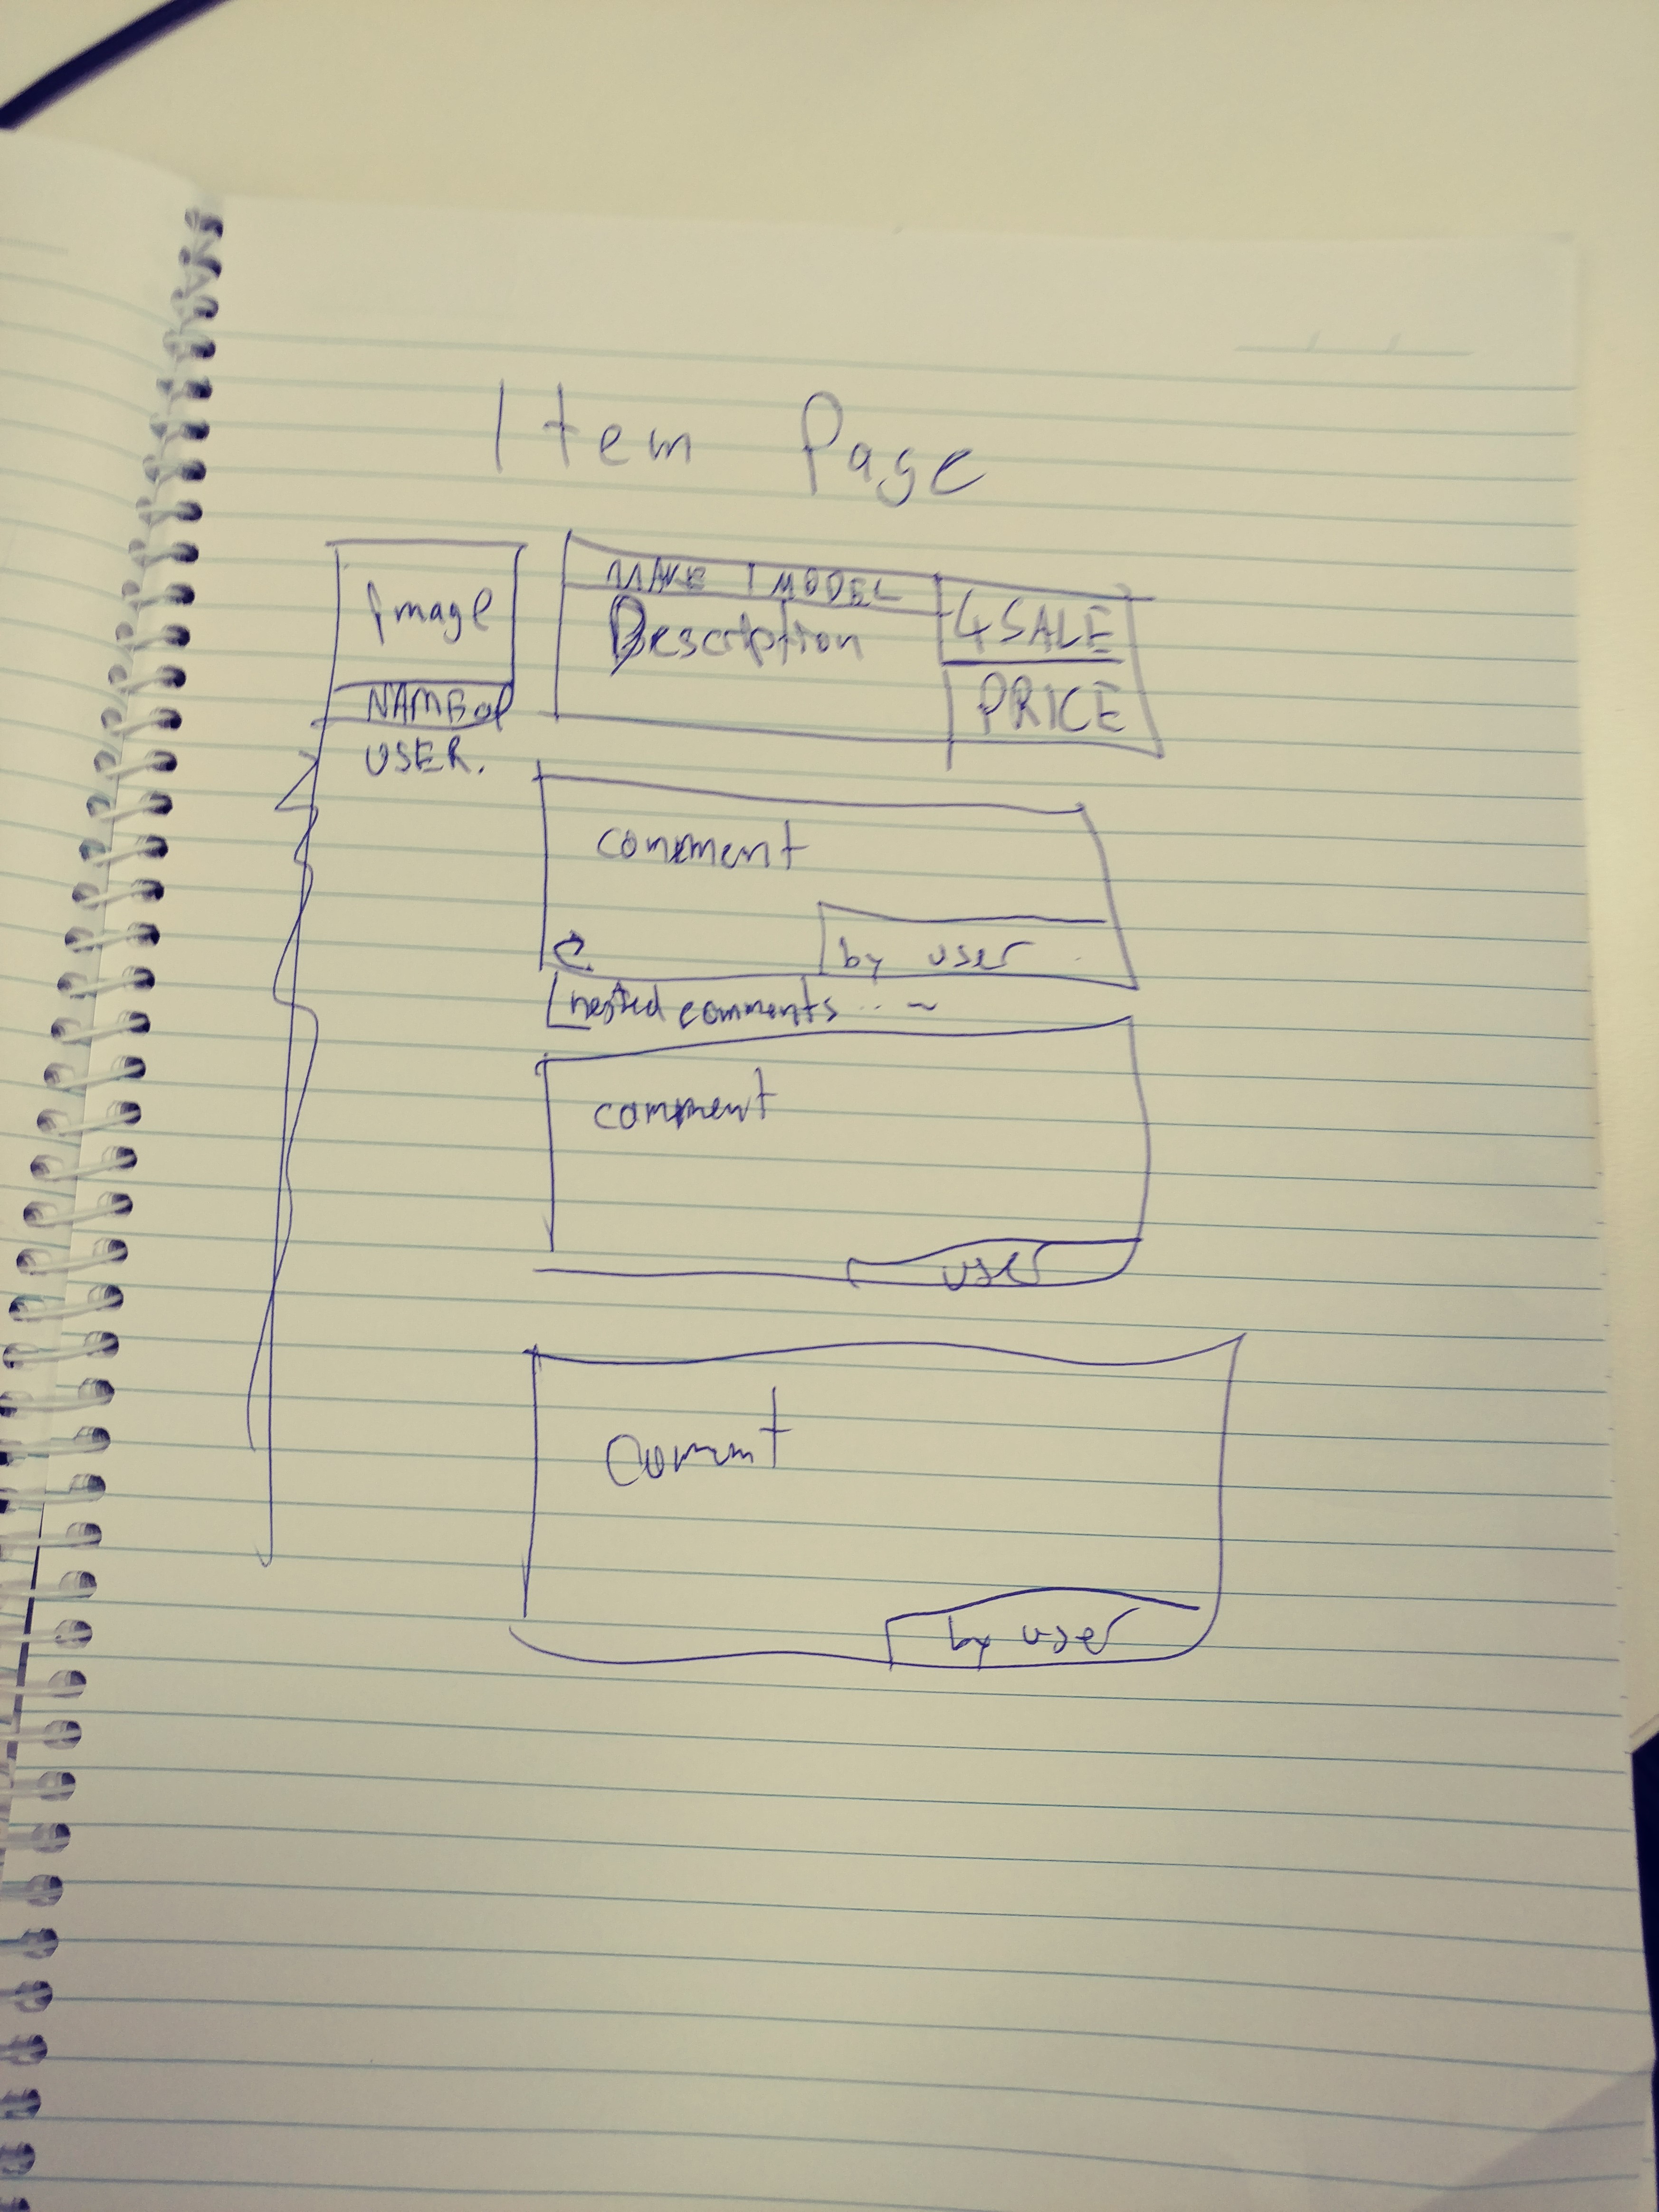 Item Page
Image
NAME of
USER.
MAKE | MODEL
Description
4SALE
PRICE
comment
by user
nested comments . . ~
comment
user
Comment
by user